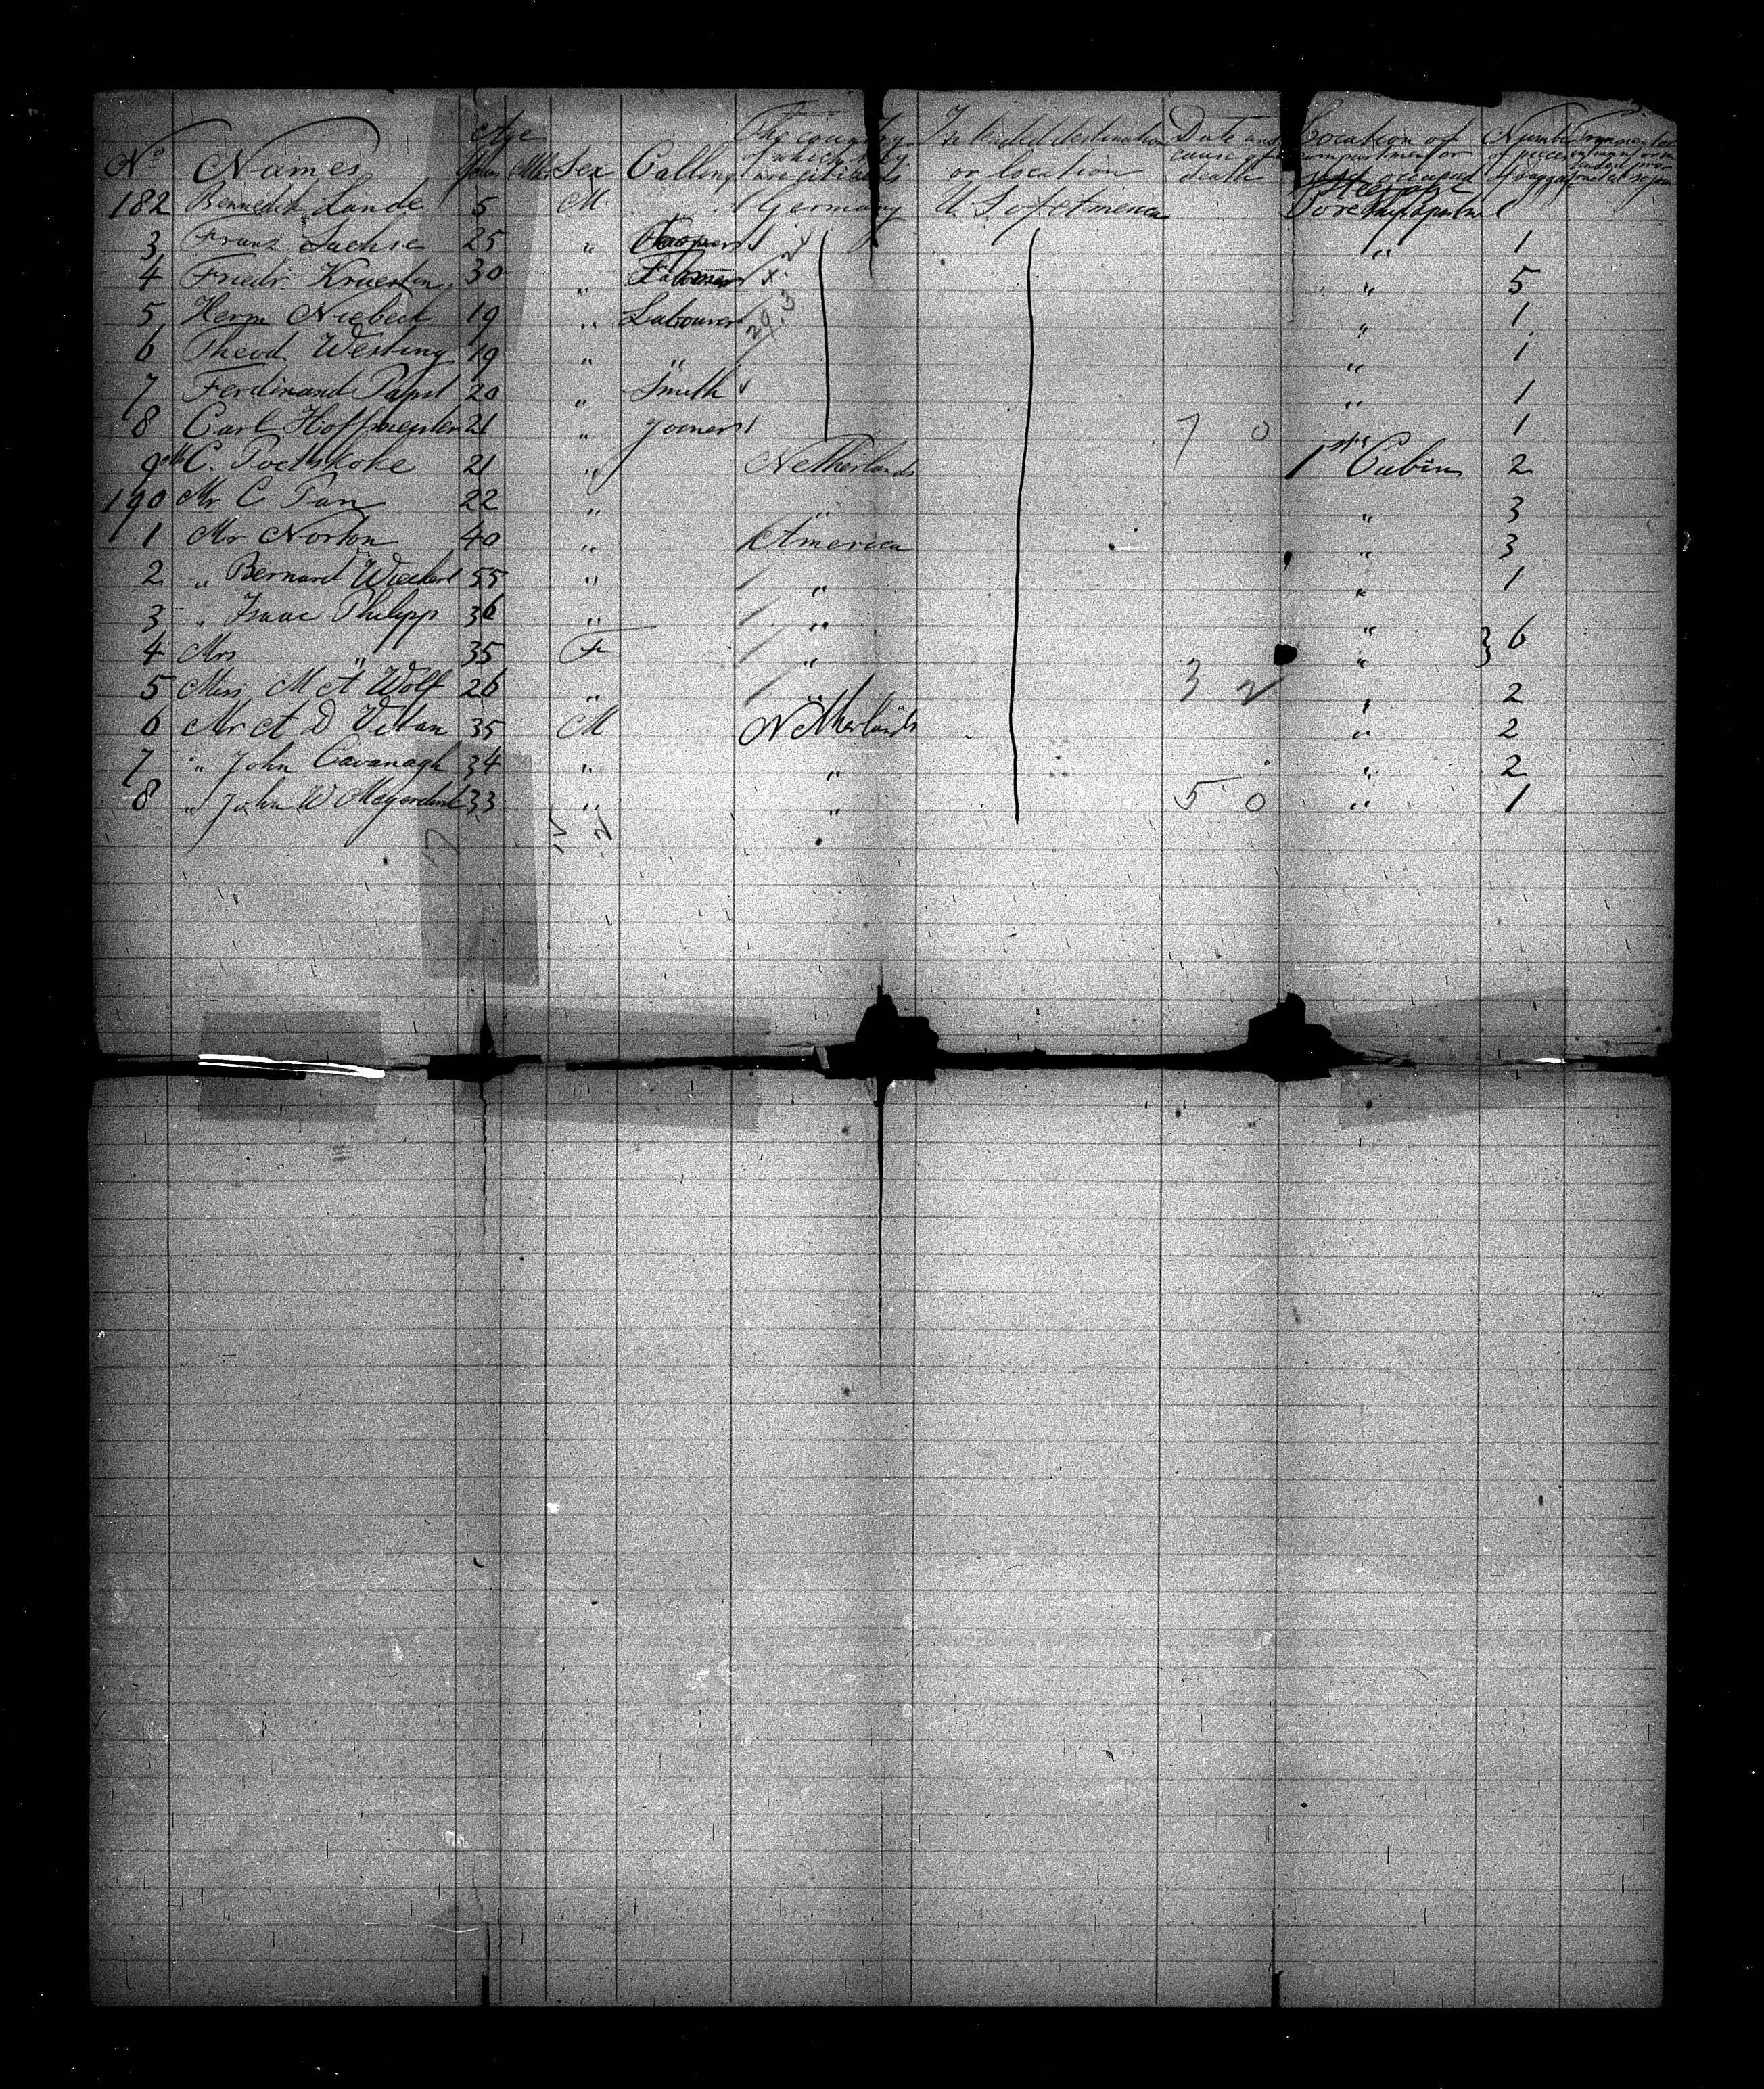 Nº Names Age Years Mths Sex Calling The country of which they are citizens Intended destination or location Date and cause of death Location of compartment or space occupied Number of pieces of baggage
182 Benedikt Lande 5 M Germany U. S. of America Steerage 1
3 Franz Sachse 25 " " 1
4 Friedr. 30 " " 5
5 Herm Niebeck 19 " Labourer " 1
6 Theod Westing 19 " " " 1
7 Ferdinand Papst 20 " Smith " 1
8 Carl Hoffmeister 21 " Joiner 7 0 " 1
9 C. 21 " Netherlands 1st Cabin 2
190 Mr C Tan 22 " " " 3
1 Mr Norton 40 " America " 3
2 " Bernard 55 " " " 1
3 " Isaac Philipp 36 " " " } 6
4 Mrs " 35 F " "
5 Miss M A Wolf 26 " " 3 2 " 2
6 Mr A D 35 M Netherlands " 2
7 " John Cavanagh 34 " " " 2
8 " John W 33 " " 5 0 " 1
17 15 2